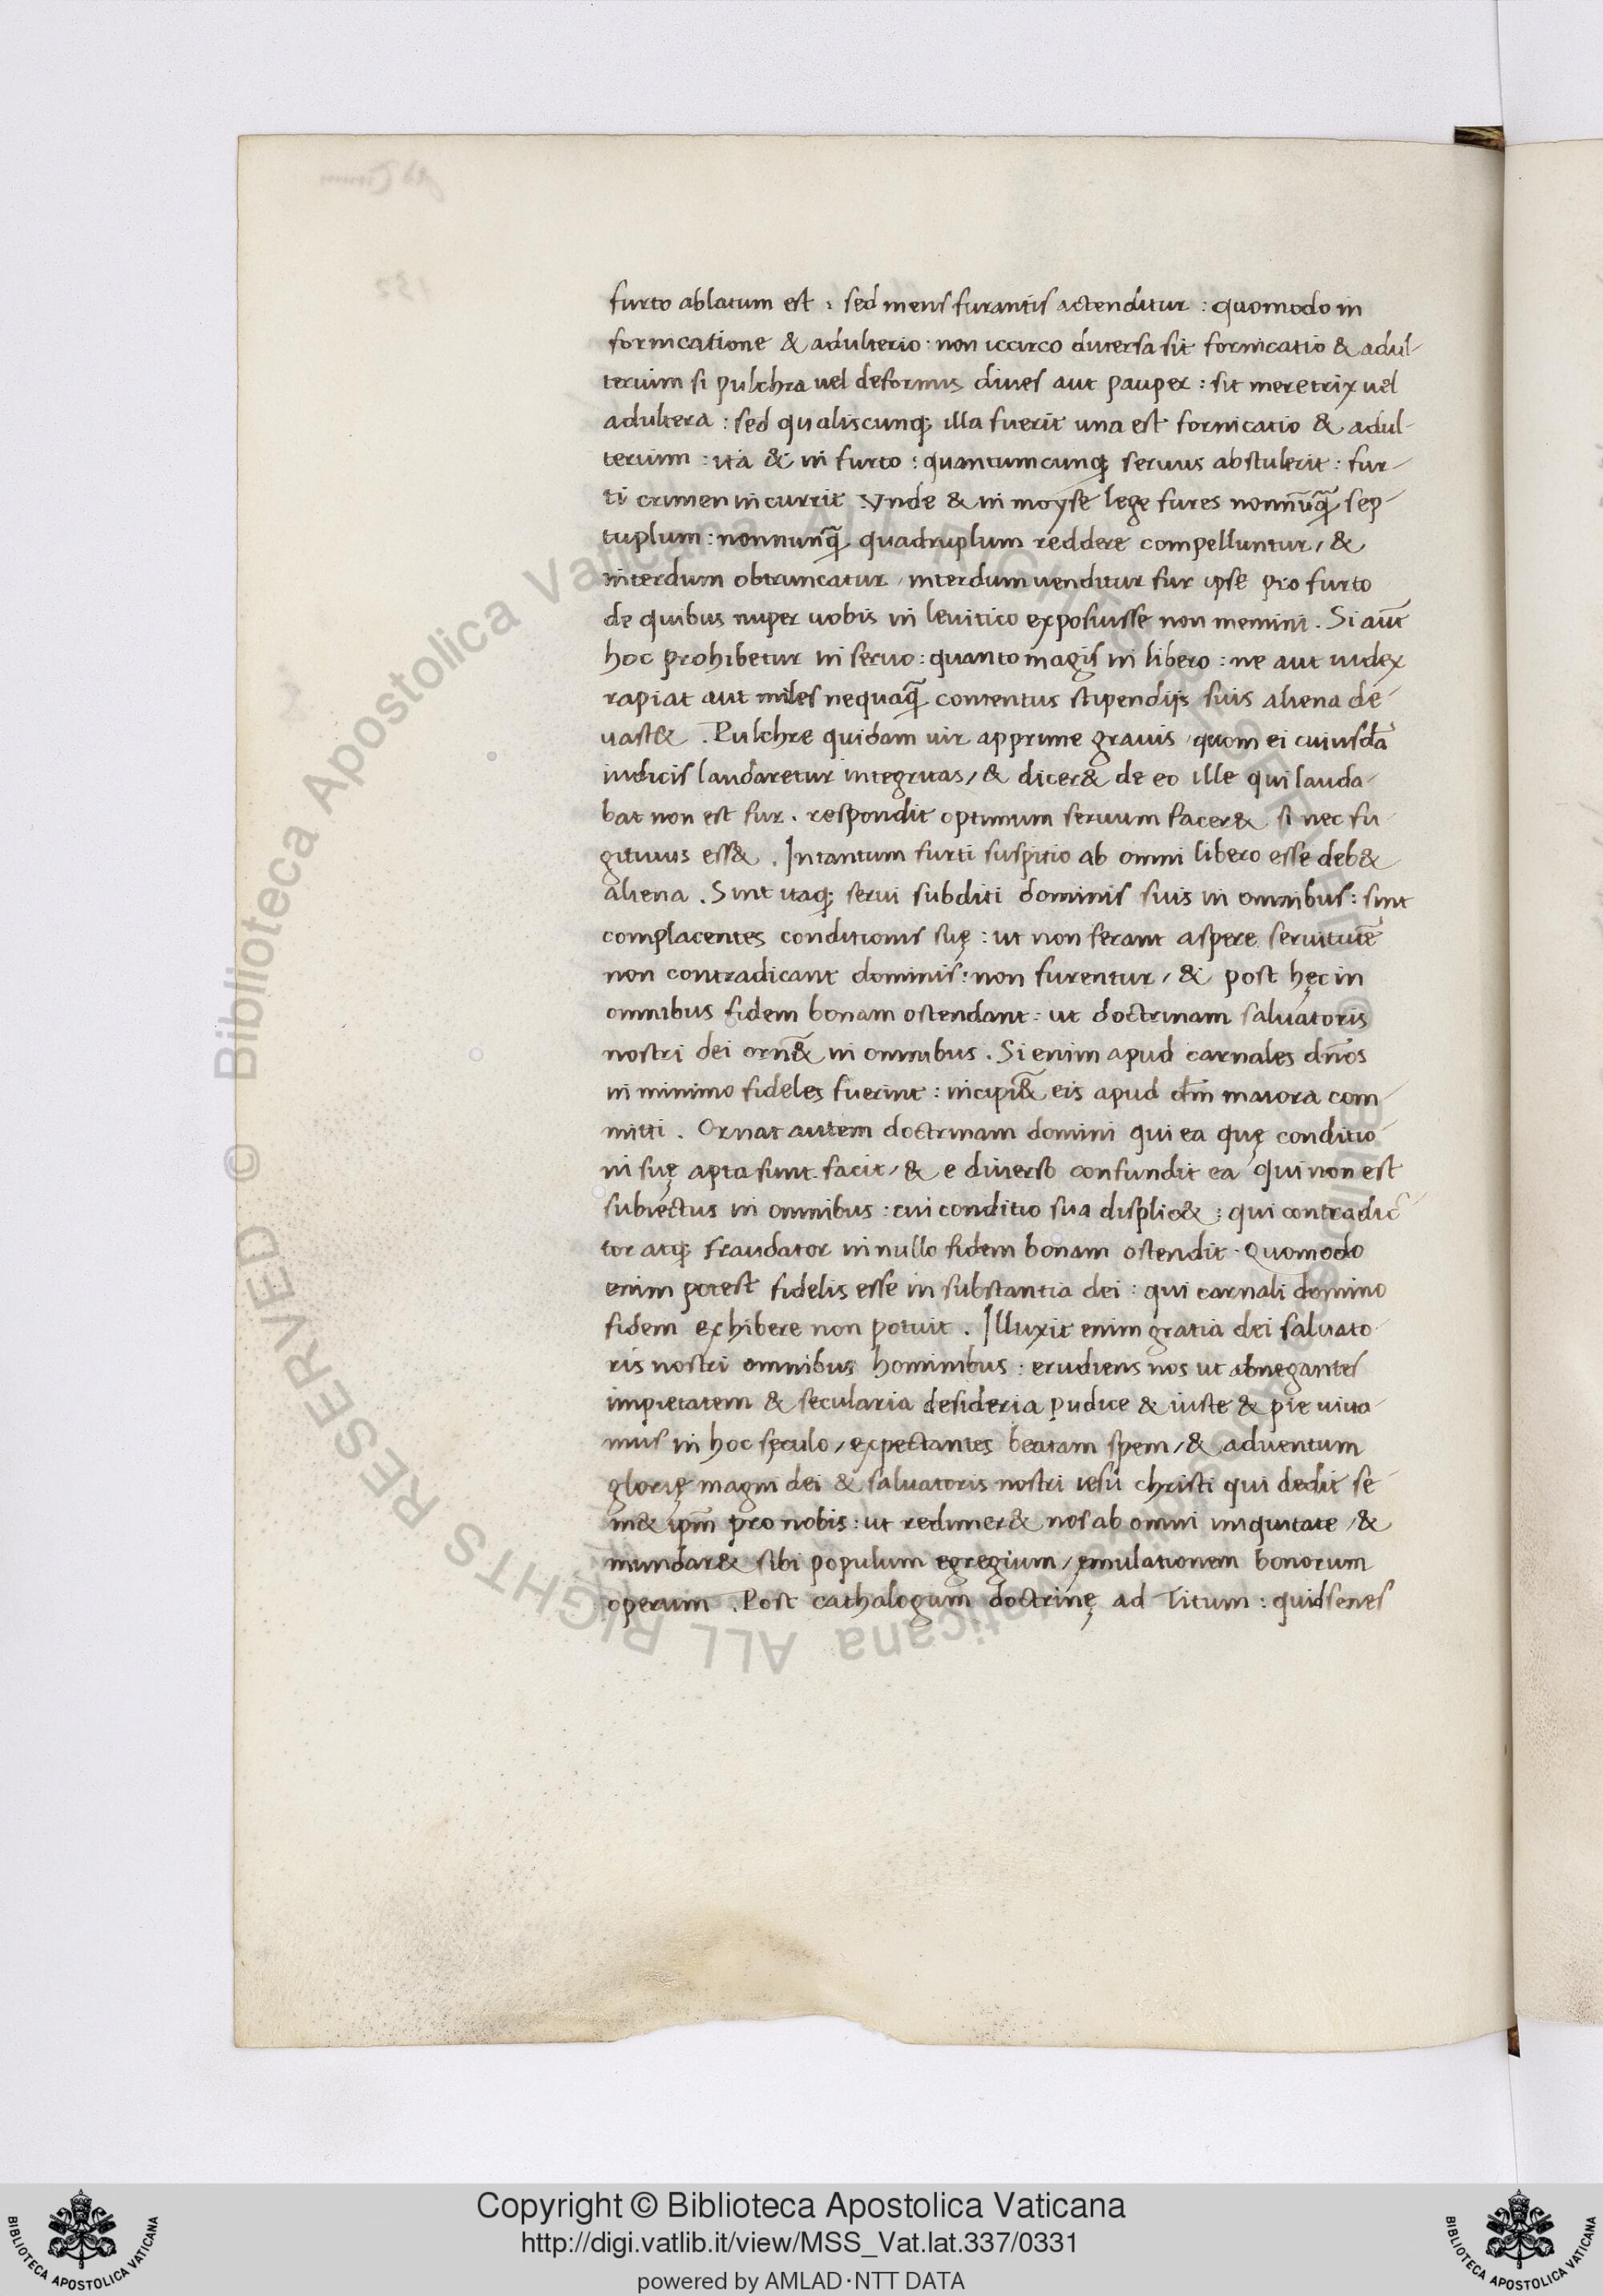 furto ablatum est : sed mens furantis actenditur : quomodo in
fornicatione & adulterio : non iccirco diuersa sit fornicatio & adul-
terium si pulchra uel deformis diues aut pauper : sit meretrix uel
adultera : sed qualiscunq; illa fuerit una est fornicatio & adul-
terium : ita & in furto : quantumcunq; seruus abstulerit : fur-
ti crimen incurrit . Vnde & in moyse lege fures nonnūq̄ sep-
tuplum : nonnunq̄ quadruplum reddere compelluntur / &
interdum obtruncatur / interdum uenditur fur ipse pro furto
de quibus nuper uobis in leuitico exposuisse non memini . Si aūt
hoc prohibetur in seruo : quanto magis in libero : ne aut iudex
rapiat aut miles nequaq̄ contentus stipendijs suis aliena de-
uast& . Pulchre quidam uir apprime grauis / quom ei cuiusdā
iudicis laudaretur integritas / & dicer& de eo ille qui lauda-
bat non est fur . respondit optimum seruum facer& si nec fu-
gitiuus ess& . Intantum furti suspitio ab omni libero esse deb&
aliena . Sint itaq; serui subditi dominis suis in omnibus : sint
complacentes conditionis suę : ut non ferant aspere seruitutē
non contradicant dominis : non furentur / & post hęc in
omnibus fidem bonam ostendant : ut doctrinam saluatoris
nostri dei orn& in omnibus . Si enim apud carnales dn̄os
in minimo fideles fuerint : incipi& eis apud dm̄ maiora com-
mitti . Ornat autem doctrinam domini qui ea quę conditio-
ni suę apta sunt facit / & e diuerso confundit ea qui non est
subiectus in omnibus : cui conditio sua displic& : qui contradic-
tor atq; fraudator in nullo fidem bonam ostendit . Quomodo
enim potest fidelis esse in substantia dei : qui carnali domino
fidem exhibere non potuit . Illuxit enim gratia dei saluato-
ris nostri omnibus hominibus : erudiens nos ut abnegantes
impietatem & secularia desideria pudice & iuste & pie uiua-
mus in hoc sęculo / expectantes beatam spem / & aduentum
glorię magni dei & saluatoris nostri iesu christi qui dedit se-
m& ipm̄ pro nobis : ut redimer& nos ab omni iniquitate / &
mundar& sibi populum egregium / ęmulationem bonorum
operum . Post cathalogum doctrinę ad Titum : quid senes
© Biblioteca Apostolica Vaticana ALL RIGHTS RESERVED
Copyright © Biblioteca Apostolica Vaticana
http://digi.vatlib.it/view/MSS_Vat.lat.337/0331
powered by AMLAD·NTT DATA
BIBLIOTECA APOSTOLICA VATICANA
BIBLIOTECA APOSTOLICA VATICANA